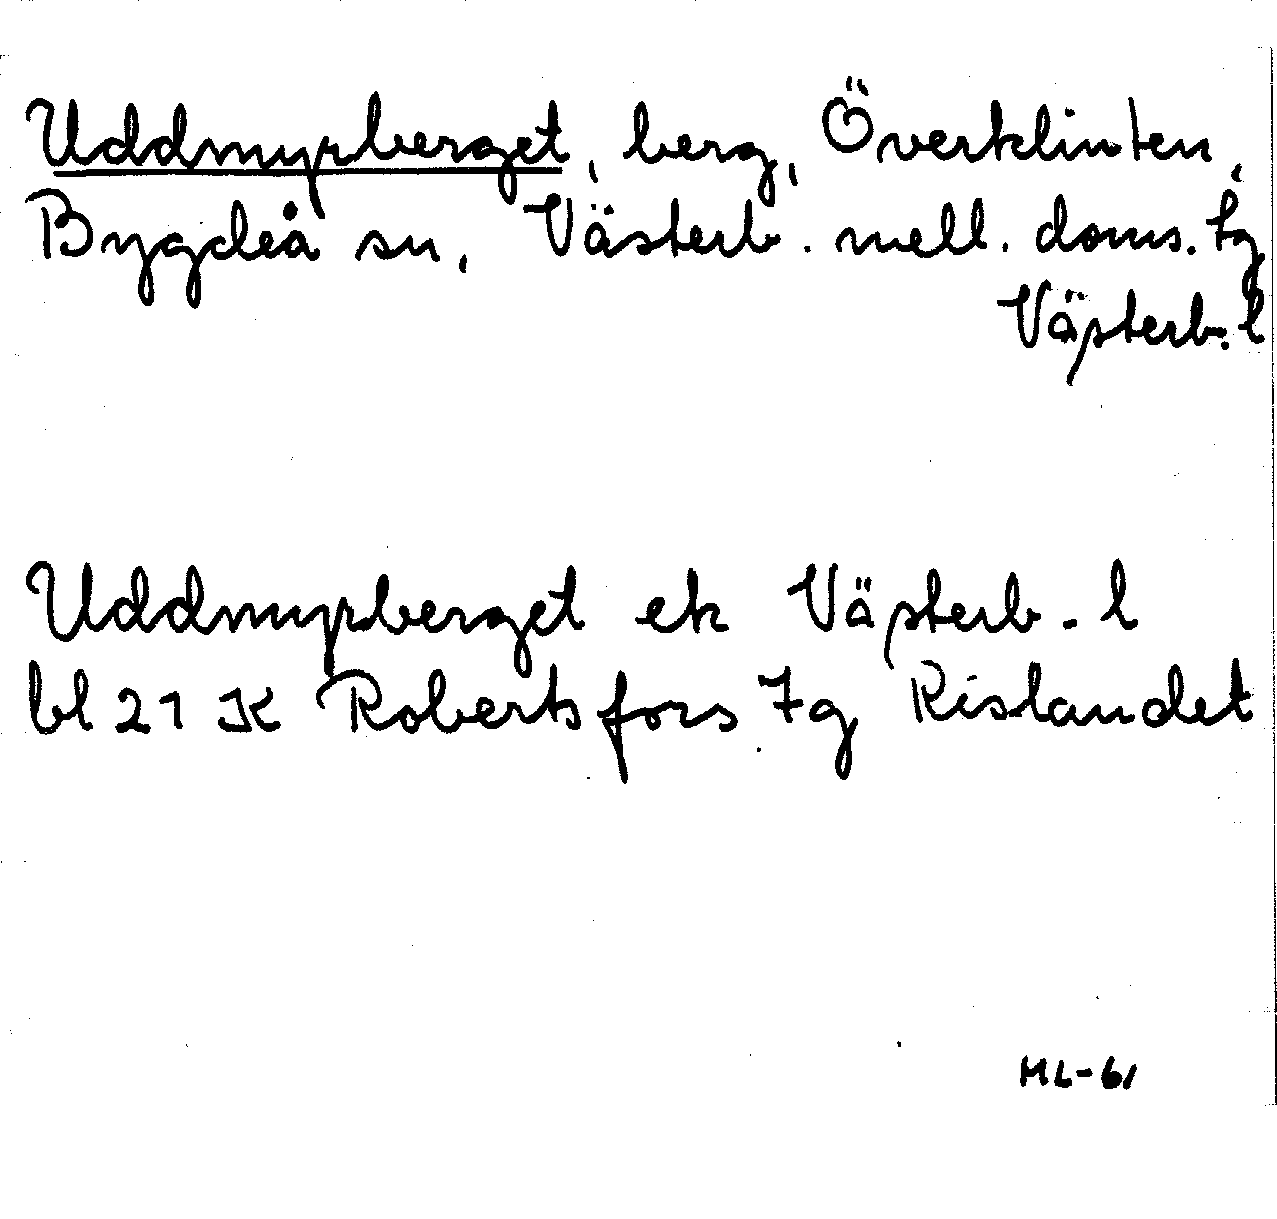 Uddmyrberget, berg, Överklinten,
Bygdeå sn, Västerb. mell. doms. tg
Västerb. l
Uddmyrberget ek Västerb. l
bl 21 K Robertsfors 7g Rislandet
ML-61